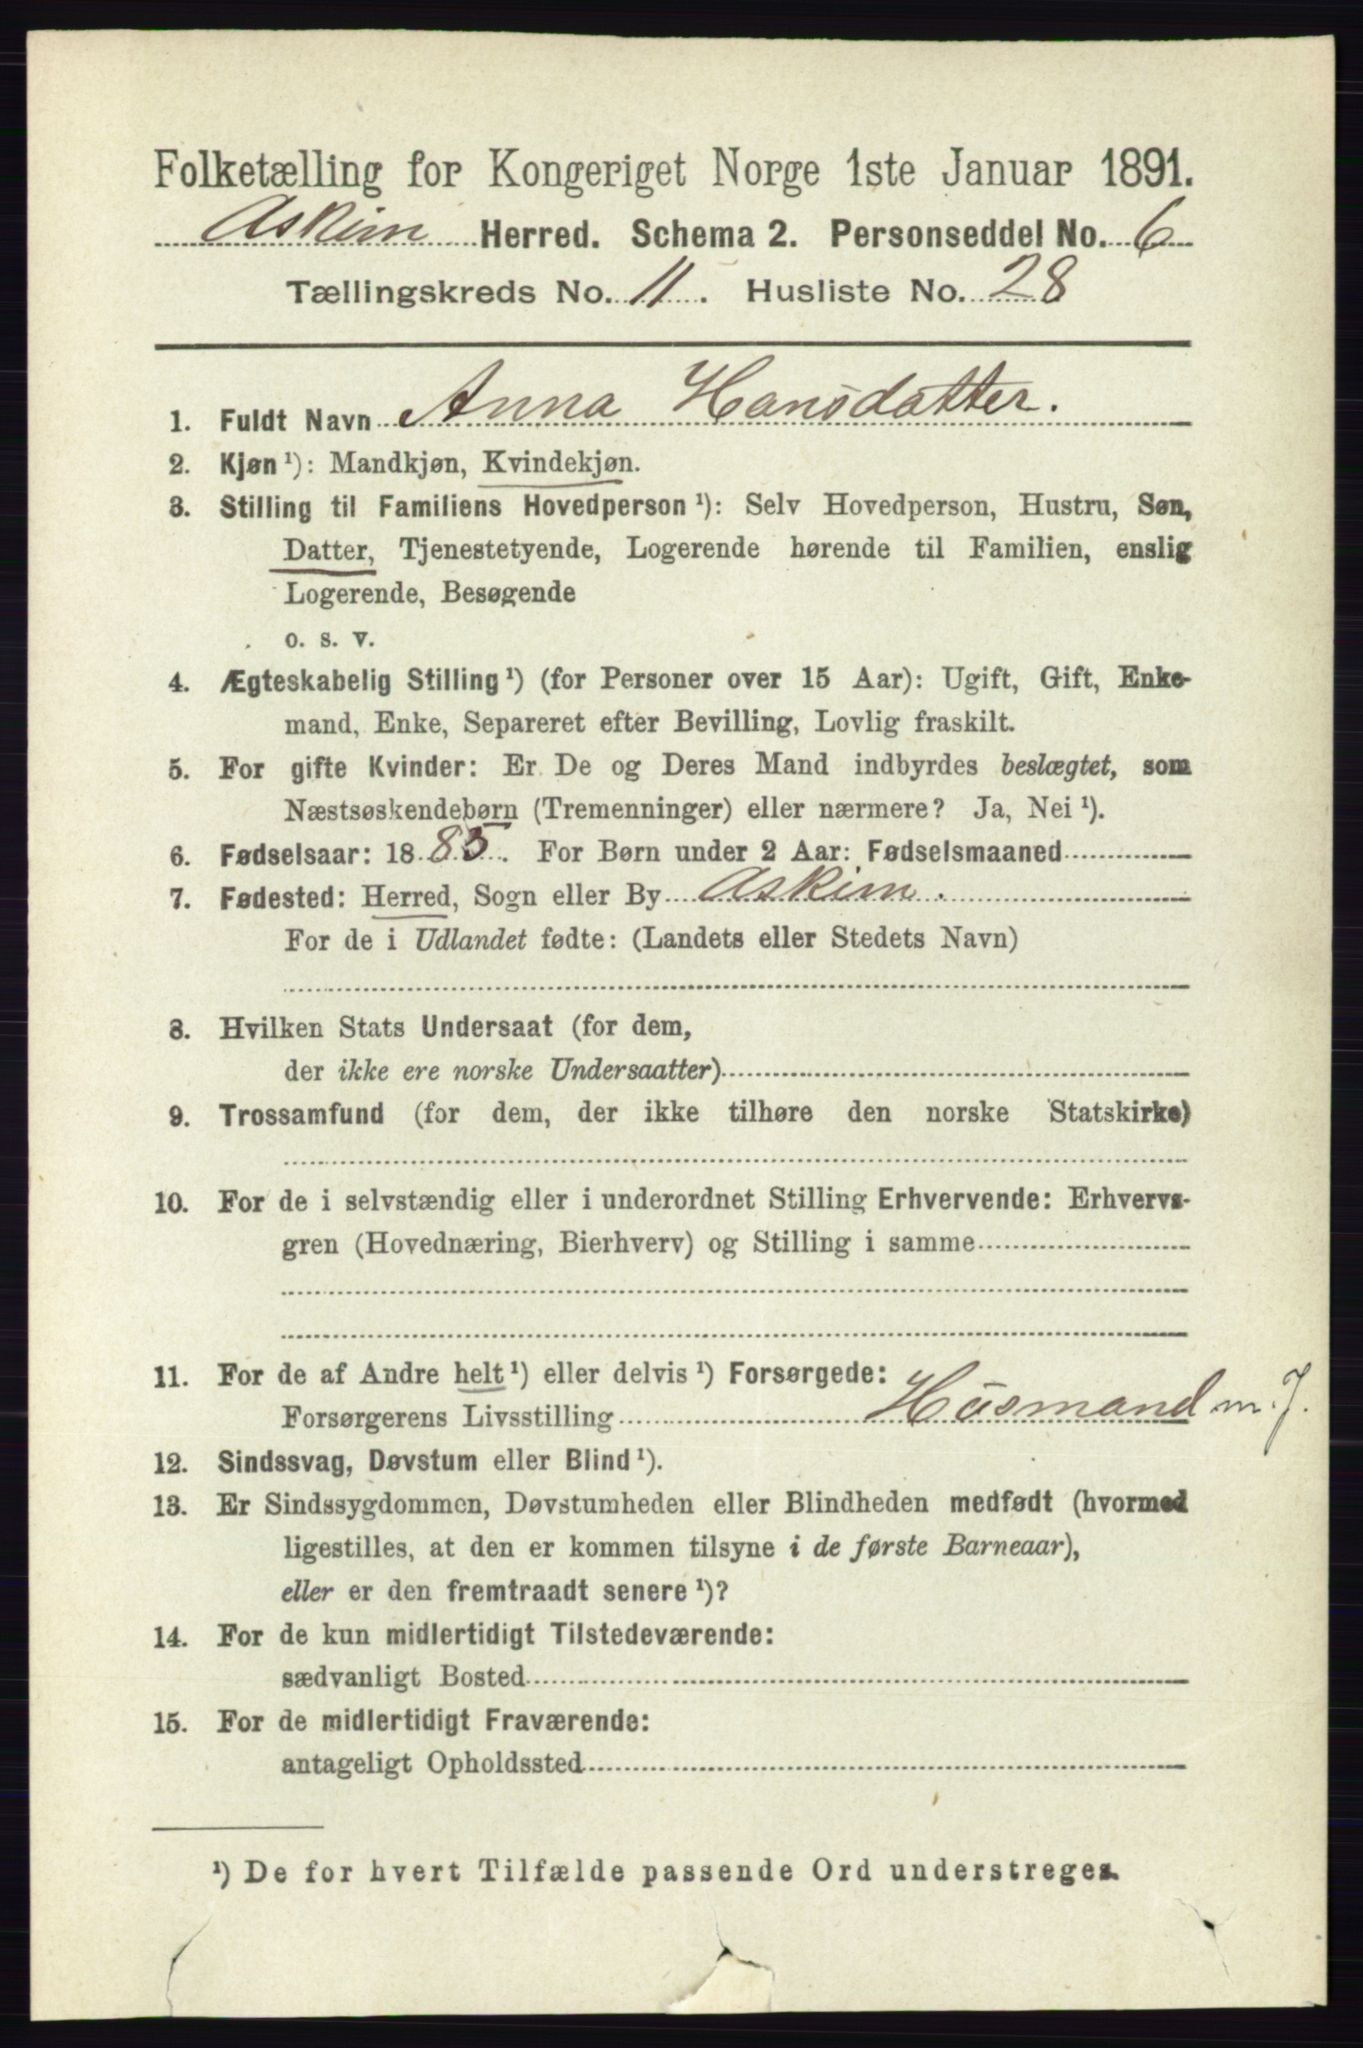 Folketælling for Kongeriget Norge 1ste Januar 1891.
Askim Herred. Schema 2. Personseddel No. 6
Tællingskreds No. 11. Husliste No. 28
1. Fuldt Navn Anna Hansdatter.
2. Kjøn¹): Mandkjøn, Kvindekjøn.
3. Stilling til Familiens Hovedperson¹): Selv Hovedperson, Hustru, Søn,
Datter, Tjenestetyende, Logerende hørende til Familien, enslig
Logerende, Besøgende
o. s. v.
4. Ægteskabelig Stilling¹) (for Personer over 15 Aar): Ugift, Gift, Enke-
mand, Enke, Separeret efter Bevilling, Lovlig fraskilt.
5. For gifte Kvinder: Er De og Deres Mand indbyrdes beslægtet, som
Næstsøskendebørn (Tremenninger) eller nærmere? Ja, Nei¹).
6. Fødselsaar: 1885. For Børn under 2 Aar: Fødselsmaaned
7. Fødested: Herred, Sogn eller By Askim.
For de i Udlandet fødte: (Landets eller Stedets Navn)
8. Hvilken Stats Undersaat (for dem,
der ikke ere norske Undersaatter)
9. Trossamfund (for dem, der ikke tilhøre den norske Statskirke)
10. For de i selvstændig eller i underordnet Stilling Erhvervende: Erhvervs-
gren (Hovednæring, Bierhverv) og Stilling i samme
11. For de af Andre helt¹) eller delvis¹) Forsørgede:
Forsørgerens Livsstilling Husmand m. J.
12. Sindssvag, Døvstum eller Blind¹).
13. Er Sindssygdommen, Døvstumheden eller Blindheden medfødt (hvormed
ligestilles, at den er kommen tilsyne i de første Barneaar),
eller er den fremtraadt senere¹)?
14. For de kun midlertidigt Tilstedeværende:
sædvanligt Bosted
15. For de midlertidigt Fraværende:
antageligt Opholdssted
¹) De for hvert Tilfælde passende Ord understreges.